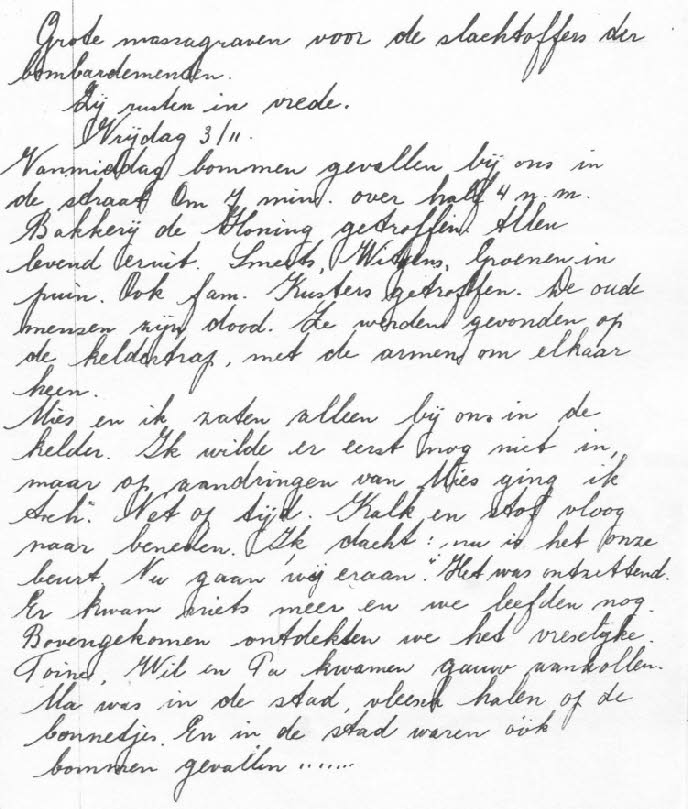 Grote massagraven voor de slachtoffers der
bombardementen.
Zij rusten in vrede.
Vrijdag 3/11.
Vanmiddag bommen gevallen bij ons in
de straat Om 7 min. over half 4 n.m.
Bakkerij de Koning getroffen. Allen
levend eruit. Smeets, Groenen in
puin. Ook fam. Kusters getroffen. De oude
mensen zijn dood. Ze werden gevonden op
de keldertrap, met de armen om elkaar
heen.
Mies en ik zaten alleen bij ons in de
kelder. Ik wilde er eerst nog niet in,
maar op aandringen van Mies ging ik
toch. Net op tijd. Kalk en stof vloog
naar beneden. Ik dacht: "nu is het onze
beurt. Nu gaan wij eraan." Het was ontzettend.
Er kwam niets meer en we leefden nog.
Bovengekomen ontdekten we het vreselijke.
Toine, Wil en Pa kwamen gauw aanhollen.
Ma was in de stad, vleesch halen op de
bonnetjes. En in de stad waren ook
bommen gevallen .......